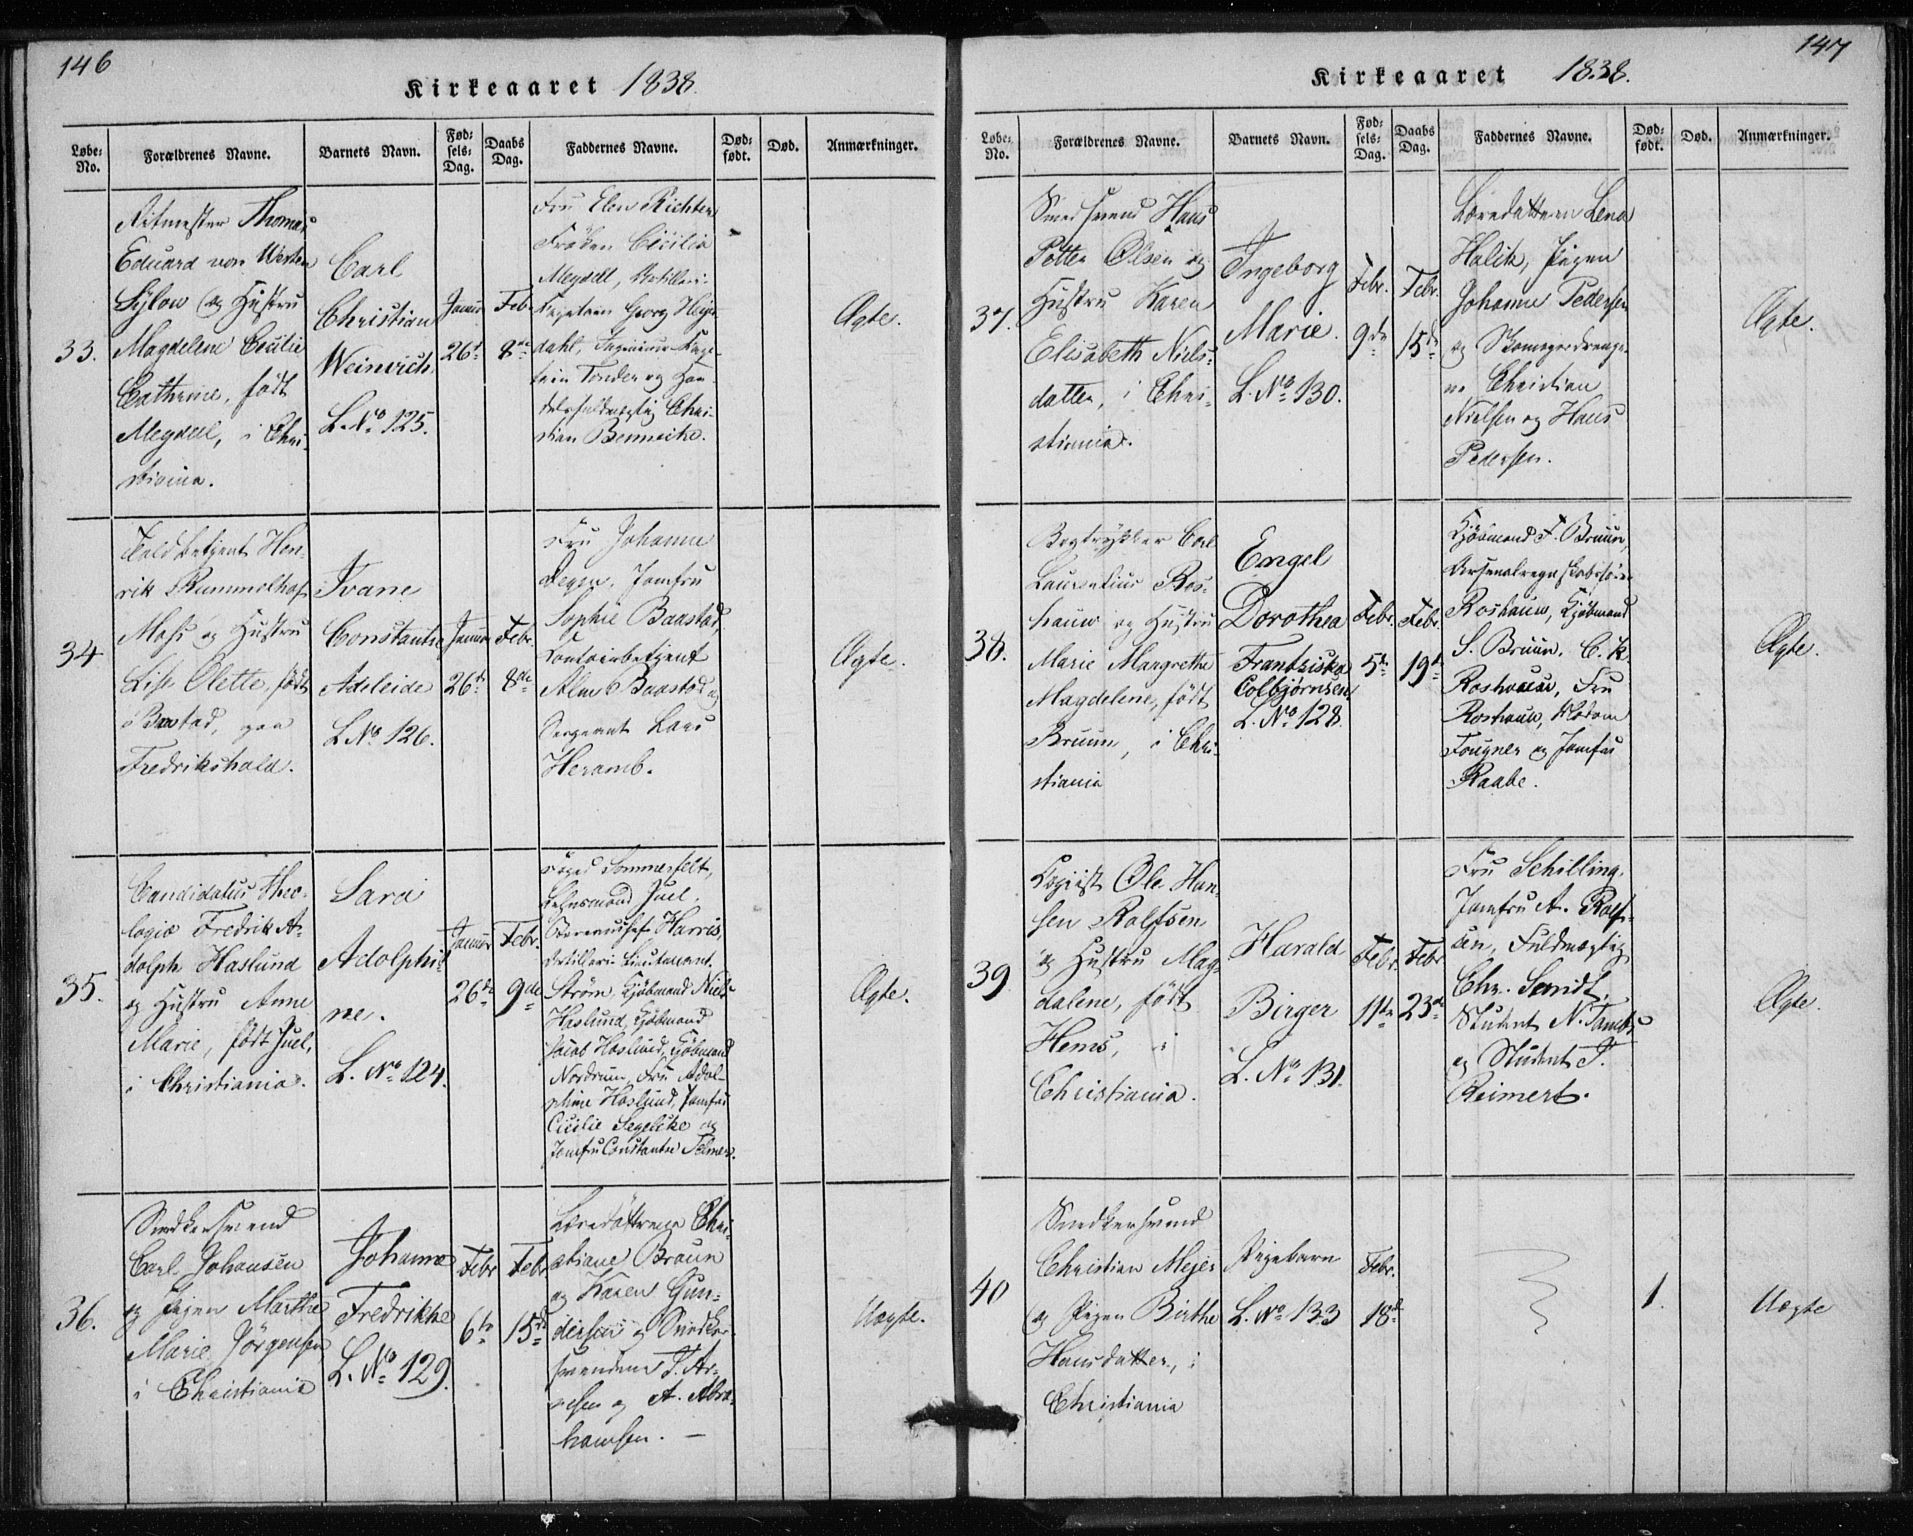 146
Kirkeaaret 1838
Løbe-No.
Forældrenes Navne.
Barnets Navn.
Fødsels-Dag.
Daabs Dag.
Faddernes Navne.
Dødfødt.
Død.
Anmærkninger.
33.
Ritmester Thomas
Eduard von Westen
Sylow og Hustru
Magdelene Cecilie
Cathrine, født
Meydell, i Chri-
stiania.
Carl
Christian
Weinrich
L. No 125.
Januar
26de
Feb.
8de
Fru Elen Richter
Frøken Cecilia
Meydell, Artilleri-
Capitain Georg Meyer
dahl, Ingenieur Kap-
tein Tønder og Han-
delsfuldmægtig Chri-
stian Benneche.
Ægte.
34
Toldbetjent Hen-
rik Rummelhof
Moss og Hustru
Lise Olette, født
Baastad, paa
Fredrikshald.
Ivane
Constantia
Adeleide
L No 126.
Januar
26de
Febr.
8de
Fru Johanne
Degen, Jomfru
Sophie Baastad,
Contoirbetjent
Alm Baastad og
Sergeant Lars
Heramb.
Ægte.
35.
Candidatus theo-
logiæ Fredrik A-
dolph Haslund
og Hustru Anne
Marie, født Juel,
i Christiania.
Sara
Adolphi-
ne.
L. No 124.
Januar
26de
Febr.
9de
Foged Sommerfelt,
Lehnsmand Juel,
Bureauchef Harris,
Artilleri Lieutenant
Strøm, Kjøbmand Niels
Haslund, Kjøbmand
Jacob Haslund, Kjøbmand
Nordrum, Fru Adol-
phine Haslund, Jomfru
Cicilie Segelcke og
Jomfru Constantse Telmer.
Ægte.
36.
Snedkersvend
Carl Johansen
og Pigen Marthe
Marie Jørgensen
i Christiania
Johanne
Fredrikke
L. No 129.
Febr
6te
Febr
15de
Læredøttrene Chri-
stiane Braun
og Karen Gun-
dersen og Snedker-
svendene T. Ar-
nesen og A. Abra-
hamsen. —
Uægte.
147
Kirkeaaret 1838.
Løbe-No.
Forældrenes Navne.
Barnets Navn.
Fødsels-Dag.
Daabs Dag.
Faddernes Navne.
Dødfødt.
Død.
Anmærkninger.
37.
Smedsvend Hans
Petter Olsen og
Hustru Karen
Elisabeth Niels-
datter, i Chri-
stiania.
Ingeborg
Marie.
L. No 130.
Febr.
9de
Febr.
15de
Læredatteren Lena
Halik, Pigen
Johanne Pedersen
og Skomagerdrenge-
ne Christian
Nielsen og Hans
Pedersen.
Ægte.
38.
Bogtrykker Carl
Laurentius Ros-
hauw og Hustru
Marie Margrethe
Magdelene, født
Bruun, i Chri-
stiania
Engel
Dorothea
Frantziska
Colbjørnsen
L. No 128.
Febr.
5te
Febr.
19de
Kjøbmand F. Bruun,
Arsenalregnskabsfører
Roshauw, Kjøbmand
S. Bruun, C. k.
Roshauw, Fru
Roshauw, Madam
Tougner og Jomfru
Raabe.
Ægte.
39
Copiist Ole Han-
sen Rolfsen
og Hustru Mag-
dalene, født
Hems, i
Christiania.
Harald
Birger
L. No 131.
Febr.
11te
Febr
23de
Fru Schilling,
Jomfru A. Rolf-
sen, Fuldmægtig
Chr. Smidt,
Student N. Tambs
og Student T.
Reimert.
Ægte.
40
Snedkersvend
Christian Mejer
og Pigen Birthe
Hansdatter, i
Christiania
Pigebarn
L. No 133
Febr.
18de
1.
Uægte